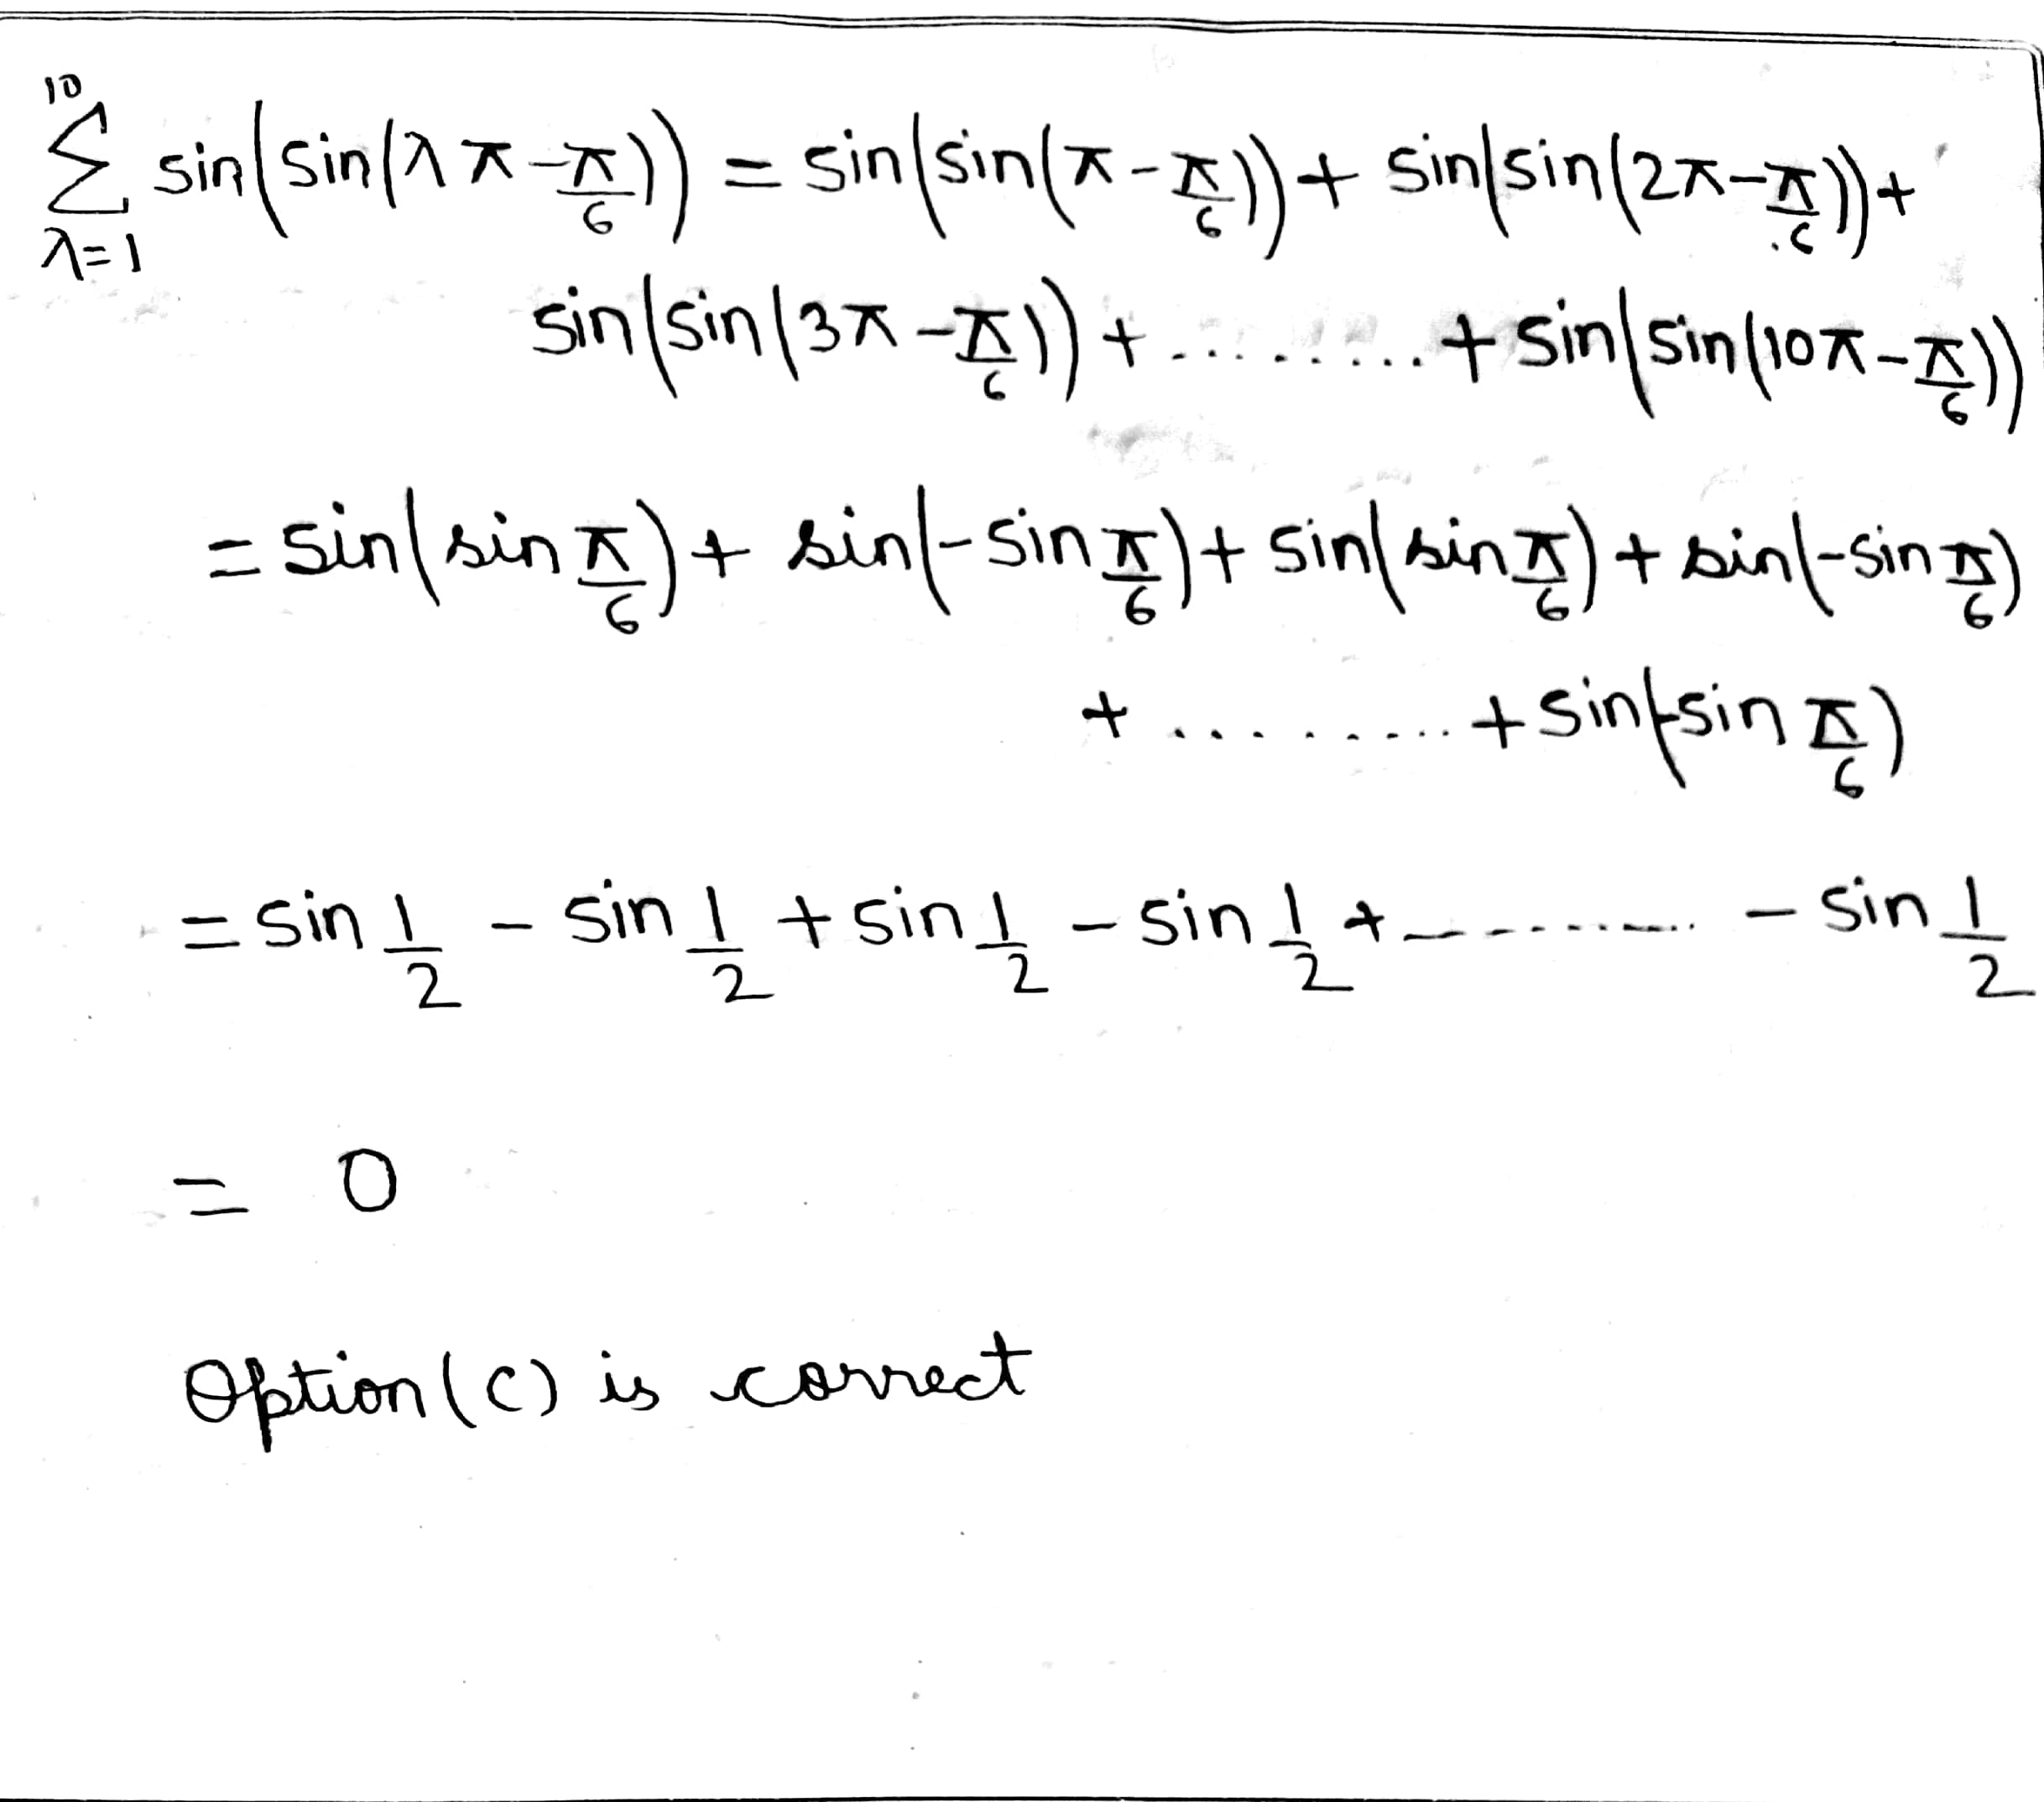 10
∑ sin(sin(λπ-π/6)) = sin(sin(π-π/6)) + sin(sin(2π-π/6)) +
λ=1
sin(sin(3π-π/6)) + ......... + sin(sin(10π-π/6))
= sin(sin π/6) + sin(-sin π/6) + sin(sin π/6) + sin(-sin π/6)
+ ......... + sin(-sin π/6)
= sin 1/2 - sin 1/2 + sin 1/2 - sin 1/2 + --------- - sin 1/2
= 0
Option (c) is correct